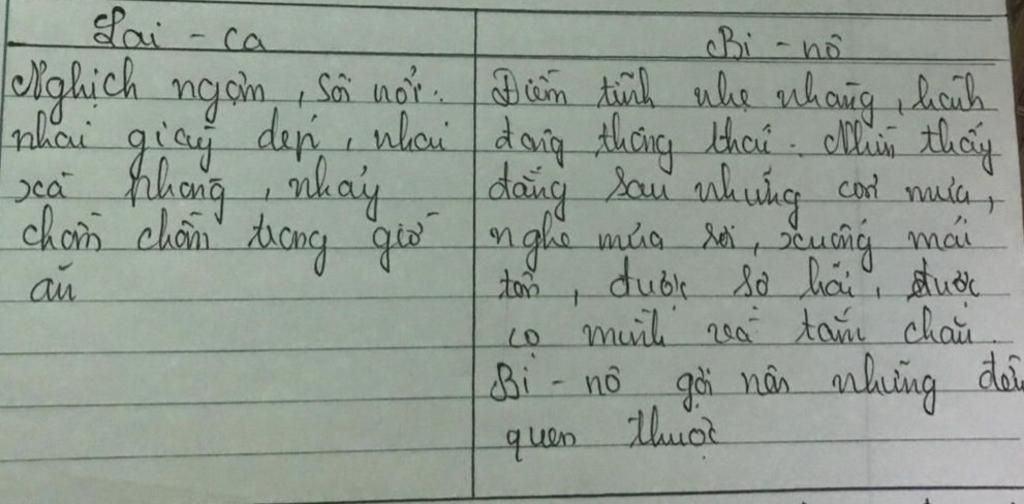 Lai - ca
Bi - nô
Nghịch ngợm, sôi nổi.
nhai giày dép, nhai
xà phòng, nhảy
chồm chồm trong giờ
ăn
Điềm tĩnh nhẹ nhàng, hành
động thông thái. Nhìn thấy
đằng sau những cơn mưa,
nghe mưa rơi, xuống mái
tôn, được sợ hãi, được
co mình tấm chăn.
Bi - nô gợi nên những
quen thuộc